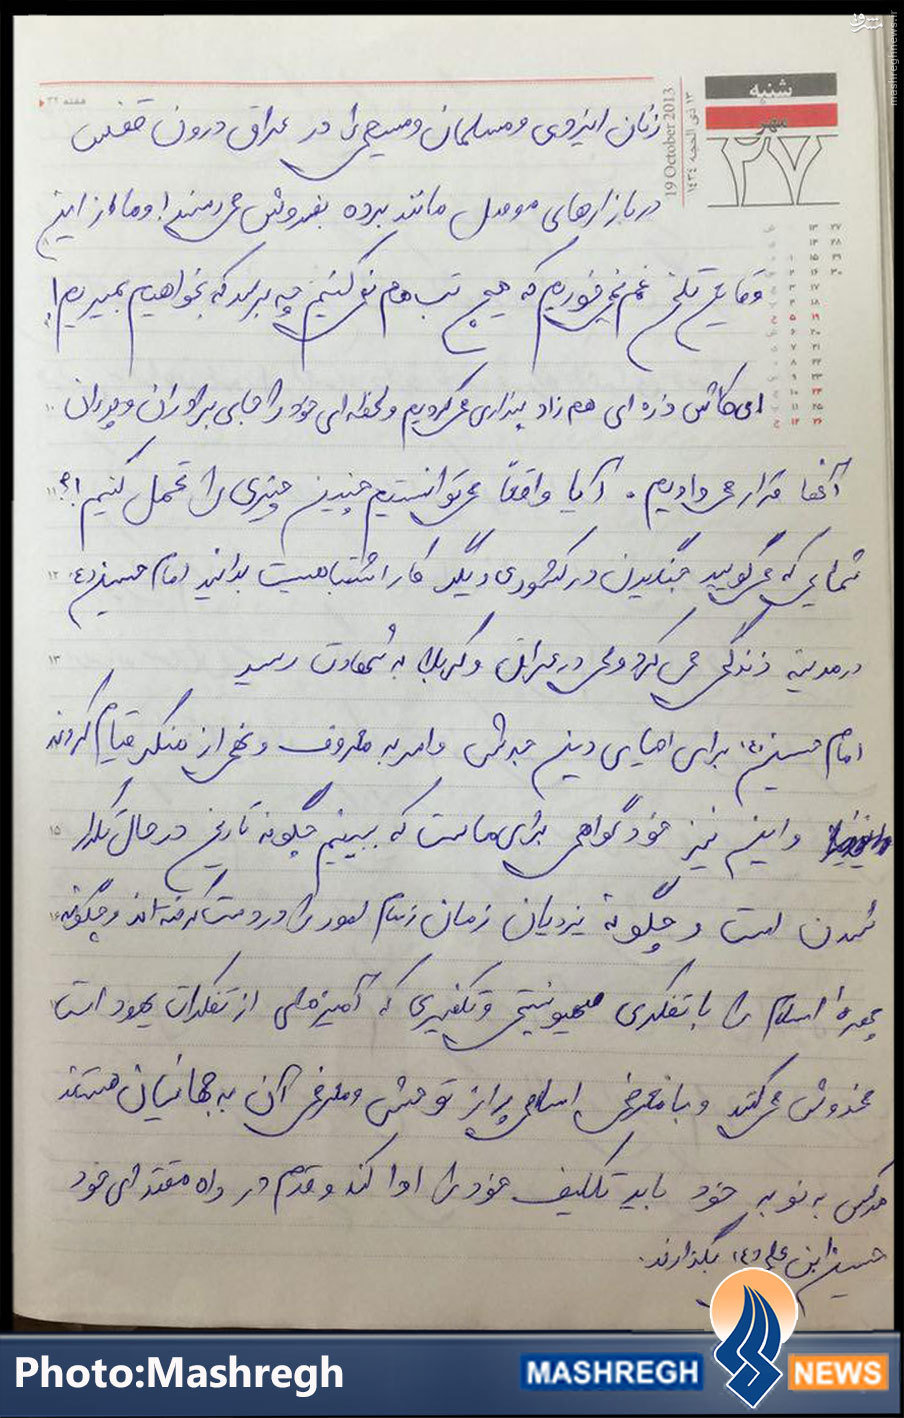 مشرق
mashreghnews.ir
شنبه
مهر
۲۷
19 October 2013
۱۳ ذی الحجه ۱۴۳۴
هفته ۳۲
زنان ایزدی و مسلمان و مسیحی را در عراق درون قفس
در بازارهای موصل مانند برده بفروش می رسند! و ما از این
وقایع تلخ غم نمی خوریم که هیچ تب هم نمی کنیم چه برسد که بخواهیم بمیریم!
ای کاش ذره ای هم زاد پنداری می کردیم و لحظه ای خود را جای برادران و پدران
۱۰
آنها قرار می دادیم. آیا واقعاً می توانستیم چنین چیزی را تحمل کنیم!؟
۱۱
شمایی که می گویید جنگیدن در کشوری دیگر کار اشتباهیست بدانید امام حسین (ع)
۱۲
در مدینه زندگی می کرد ولی در عراق و کربلا به شهادت رسید
۱۳
امام حسین (ع) برای احیای دین جدش و امر به معروف و نهی از منکر قیام کردند
و این نیز خود گواهی برای ماست که ببینیم چگونه تاریخ در حال تکرار
۱۵
شدن است و چگونه یزدیان زمان زمام امور را در دست گرفته اند و چگونه
۱۶
چهره اسلام را با تفکری صهیونیتی و تکفیری که آمیزه ای از تفکرات یهود است
مخدوش می کنند و با معرفی اسلامی پر از توحش و معرفی آن به جهانیان هستند
هر کس به نوبه خود باید تکلیف خود را ادا کند و قدم در راه مقتدای خود
حسین ابن علی (ع) بگذارند.
Photo:Mashregh
MASHREGH NEWS